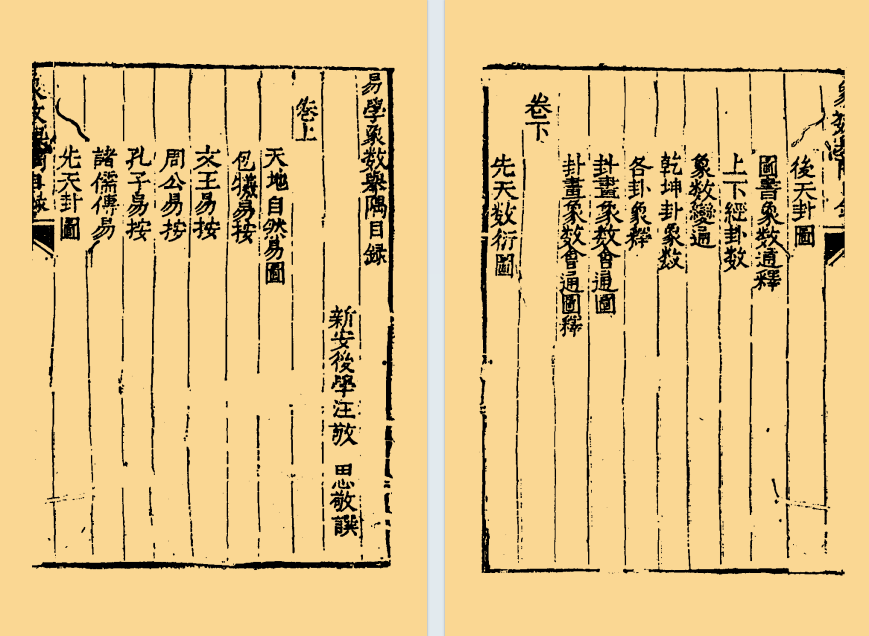 易學象数舉隅目録
新安後學汪敬 思敬譔
卷上
天地自然易圖
包犧易按
文王易按
周公易按
孔子易按
諸儒傳易
先天卦圖
後天卦圖
圖書象数通釋
上下經卦数
象数變通
乾坤卦象数
各卦象釋
卦畫象数會通圖
卦畫象数會通圖釋
卷下
先天数衍圖